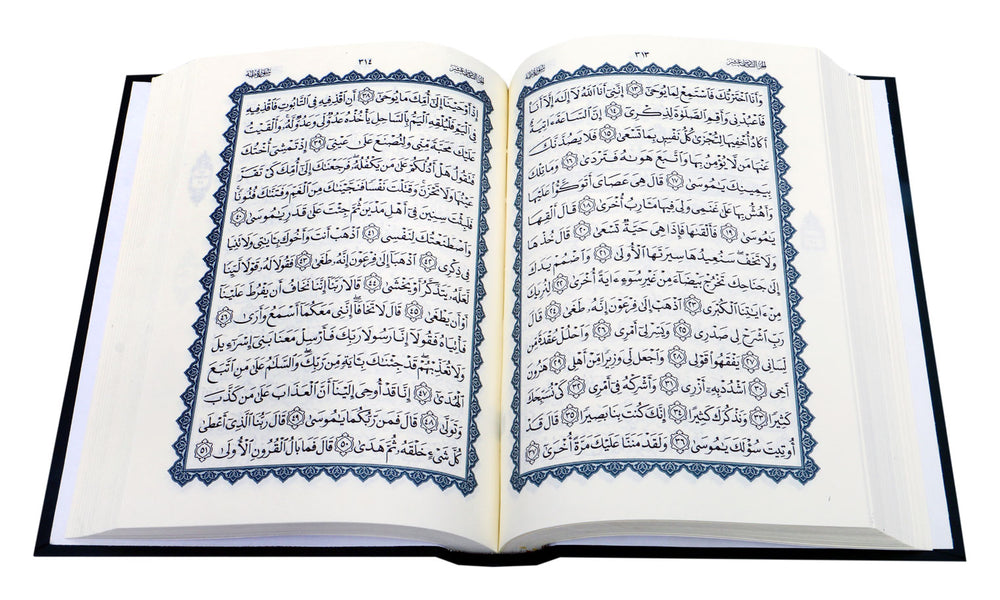 الجزء السادس عشر ٣١٣ سورة طه
وَأَنَا ٱخْتَرْتُكَ فَٱسْتَمِعْ لِمَا يُوحَىٰٓ ﴿١٣﴾ إِنَّنِىٓ أَنَا ٱللَّهُ لَآ إِلَٰهَ إِلَّآ أَنَا۠
فَٱعْبُدْنِى وَأَقِمِ ٱلصَّلَوٰةَ لِذِكْرِىٓ ﴿١٤﴾ إِنَّ ٱلسَّاعَةَ ءَاتِيَةٌ
أَكَادُ أُخْفِيهَا لِتُجْزَىٰ كُلُّ نَفْسٍۭ بِمَا تَسْعَىٰ ﴿١٥﴾ فَلَا يَصُدَّنَّكَ
عَنْهَا مَن لَّا يُؤْمِنُ بِهَا وَٱتَّبَعَ هَوَىٰهُ فَتَرْدَىٰ ﴿١٦﴾ وَمَا تِلْكَ
بِيَمِينِكَ يَٰمُوسَىٰ ﴿١٧﴾ قَالَ هِىَ عَصَاىَ أَتَوَكَّؤُا۟ عَلَيْهَا
وَأَهُشُّ بِهَا عَلَىٰ غَنَمِى وَلِىَ فِيهَا مَـَٔارِبُ أُخْرَىٰ ﴿١٨﴾ قَالَ أَلْقِهَا
يَٰمُوسَىٰ ﴿١٩﴾ فَأَلْقَىٰهَا فَإِذَا هِىَ حَيَّةٌ تَسْعَىٰ ﴿٢٠﴾ قَالَ خُذْهَا
وَلَا تَخَفْ سَنُعِيدُهَا سِيرَتَهَا ٱلْأُولَىٰ ﴿٢١﴾ وَٱضْمُمْ يَدَكَ
إِلَىٰ جَنَاحِكَ تَخْرُجْ بَيْضَآءَ مِنْ غَيْرِ سُوٓءٍ ءَايَةً أُخْرَىٰ ﴿٢٢﴾ لِنُرِيَكَ
مِنْ ءَايَٰتِنَا ٱلْكُبْرَى ﴿٢٣﴾ ٱذْهَبْ إِلَىٰ فِرْعَوْنَ إِنَّهُۥ طَغَىٰ ﴿٢٤﴾ قَالَ
رَبِّ ٱشْرَحْ لِى صَدْرِى ﴿٢٥﴾ وَيَسِّرْ لِىٓ أَمْرِى ﴿٢٦﴾ وَٱحْلُلْ عُقْدَةً مِّن
لِّسَانِى ﴿٢٧﴾ يَفْقَهُوا۟ قَوْلِى ﴿٢٨﴾ وَٱجْعَل لِّى وَزِيرًا مِّنْ أَهْلِى ﴿٢٩﴾ هَٰرُونَ
أَخِى ﴿٣٠﴾ ٱشْدُدْ بِهِۦٓ أَزْرِى ﴿٣١﴾ وَأَشْرِكْهُ فِىٓ أَمْرِى ﴿٣٢﴾ كَىْ نُسَبِّحَكَ
كَثِيرًا ﴿٣٣﴾ وَنَذْكُرَكَ كَثِيرًا ﴿٣٤﴾ إِنَّكَ كُنتَ بِنَا بَصِيرًا ﴿٣٥﴾ قَالَ قَدْ
أُوتِيتَ سُؤْلَكَ يَٰمُوسَىٰ ﴿٣٦﴾ وَلَقَدْ مَنَنَّا عَلَيْكَ مَرَّةً أُخْرَىٰٓ ﴿٣٧﴾
الجزء السادس عشر ٣١٤ سورة طه
إِذْ أَوْحَيْنَآ إِلَىٰٓ أُمِّكَ مَا يُوحَىٰٓ ﴿٣٨﴾ أَنِ ٱقْذِفِيهِ فِى ٱلتَّابُوتِ فَٱقْذِفِيهِ
فِى ٱلْيَمِّ فَلْيُلْقِهِ ٱلْيَمُّ بِٱلسَّاحِلِ يَأْخُذْهُ عَدُوٌّ لِّى وَعَدُوٌّ لَّهُۥ وَأَلْقَيْتُ
عَلَيْكَ مَحَبَّةً مِّنِّى وَلِتُصْنَعَ عَلَىٰ عَيْنِىٓ ﴿٣٩﴾ إِذْ تَمْشِىٓ أُخْتُكَ
فَتَقُولُ هَلْ أَدُلُّكُمْ عَلَىٰ مَن يَكْفُلُهُۥ فَرَجَعْنَٰكَ إِلَىٰٓ أُمِّكَ كَىْ تَقَرَّ
عَيْنُهَا وَلَا تَحْزَنَ وَقَتَلْتَ نَفْسًا فَنَجَّيْنَٰكَ مِنَ ٱلْغَمِّ وَفَتَنَّٰكَ فُتُونًا
فَلَبِثْتَ سِنِينَ فِىٓ أَهْلِ مَدْيَنَ ثُمَّ جِئْتَ عَلَىٰ قَدَرٍ يَٰمُوسَىٰ ﴿٤٠﴾
وَٱصْطَنَعْتُكَ لِنَفْسِى ﴿٤١﴾ ٱذْهَبْ أَنتَ وَأَخُوكَ بِـَٔايَٰتِى وَلَا تَنِيَا
فِى ذِكْرِى ﴿٤٢﴾ ٱذْهَبَآ إِلَىٰ فِرْعَوْنَ إِنَّهُۥ طَغَىٰ ﴿٤٣﴾ فَقُولَا لَهُۥ قَوْلًا لَّيِّنًا
لَّعَلَّهُۥ يَتَذَكَّرُ أَوْ يَخْشَىٰ ﴿٤٤﴾ قَالَا رَبَّنَآ إِنَّنَا نَخَافُ أَن يَفْرُطَ عَلَيْنَآ
أَوْ أَن يَطْغَىٰ ﴿٤٥﴾ قَالَ لَا تَخَافَآ إِنَّنِى مَعَكُمَآ أَسْمَعُ وَأَرَىٰ ﴿٤٦﴾
فَأْتِيَاهُ فَقُولَآ إِنَّا رَسُولَا رَبِّكَ فَأَرْسِلْ مَعَنَا بَنِىٓ إِسْرَٰٓءِيلَ
وَلَا تُعَذِّبْهُمْ قَدْ جِئْنَٰكَ بِـَٔايَةٍ مِّن رَّبِّكَ وَٱلسَّلَٰمُ عَلَىٰ مَنِ ٱتَّبَعَ
ٱلْهُدَىٰٓ ﴿٤٧﴾ إِنَّا قَدْ أُوحِىَ إِلَيْنَآ أَنَّ ٱلْعَذَابَ عَلَىٰ مَن كَذَّبَ
وَتَوَلَّىٰ ﴿٤٨﴾ قَالَ فَمَن رَّبُّكُمَا يَٰمُوسَىٰ ﴿٤٩﴾ قَالَ رَبُّنَا ٱلَّذِىٓ أَعْطَىٰ
كُلَّ شَىْءٍ خَلْقَهُۥ ثُمَّ هَدَىٰ ﴿٥٠﴾ قَالَ فَمَا بَالُ ٱلْقُرُونِ ٱلْأُولَىٰ ﴿٥١﴾